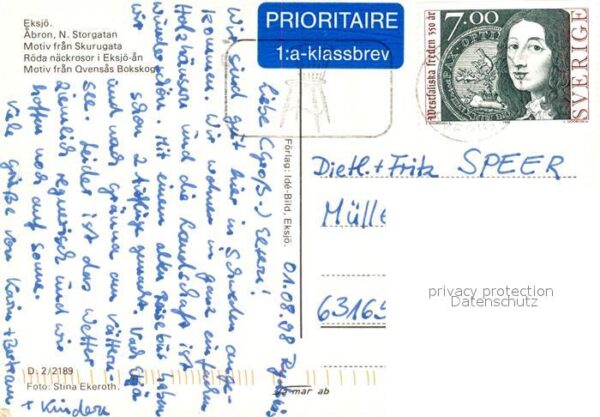 Eksjö.
Åbron, N. Storgatan
Motiv från Skurugata
Röda näckrosor i Eksjö-ån
Motiv från Qvensås Bokskog
PRIORITAIRE
1:a-klassbrev
7.00
Westfaliska freden 350 år
SVERIGE
01.08.98
Liebe (Groß-) Eltern!
Wir sind gut hier in Schweden ange-
kommen. Wir wohnen in ganz einfachen
Holzhäusern und die Landschaft ist
wunderschön. Mit einem alten Reisebus haben
wir schon 2 Ausflüge gemacht. Nach
und nach am Vättern-
see. Leider ist das Wetter
ziemlich regnerisch und wir
hoffen noch auf Sonne.
Viele Grüße von Karin + Bertram
+ Kindern
Förlag: Idé-Bild, Eksjö.
Dietl. + Fritz SPEER
Mülle
63165
privacy protection
Datenschutz
D. 2/2189
Foto: Stina Ekeroth.
da-mar ab